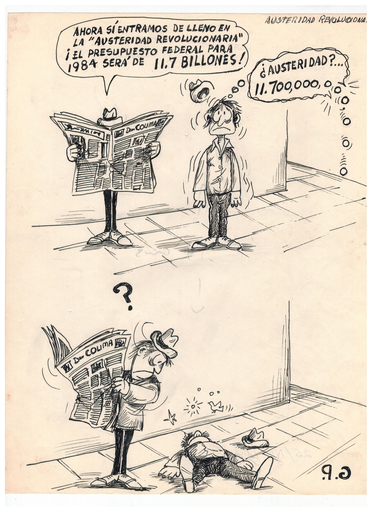 AUSTERIDAD REVOLUCIONA
AHORA SÍ ENTRAMOS DE LLENO EN
LA "AUSTERIDAD REVOLUCIONARIA"
¡EL PRESUPUESTO FEDERAL PARA
1984 SERÁ DE 11.7 BILLONES!
¿AUSTERIDAD?...
11.700,000,
D. DE COLIMA
?
D. DE COLIMA